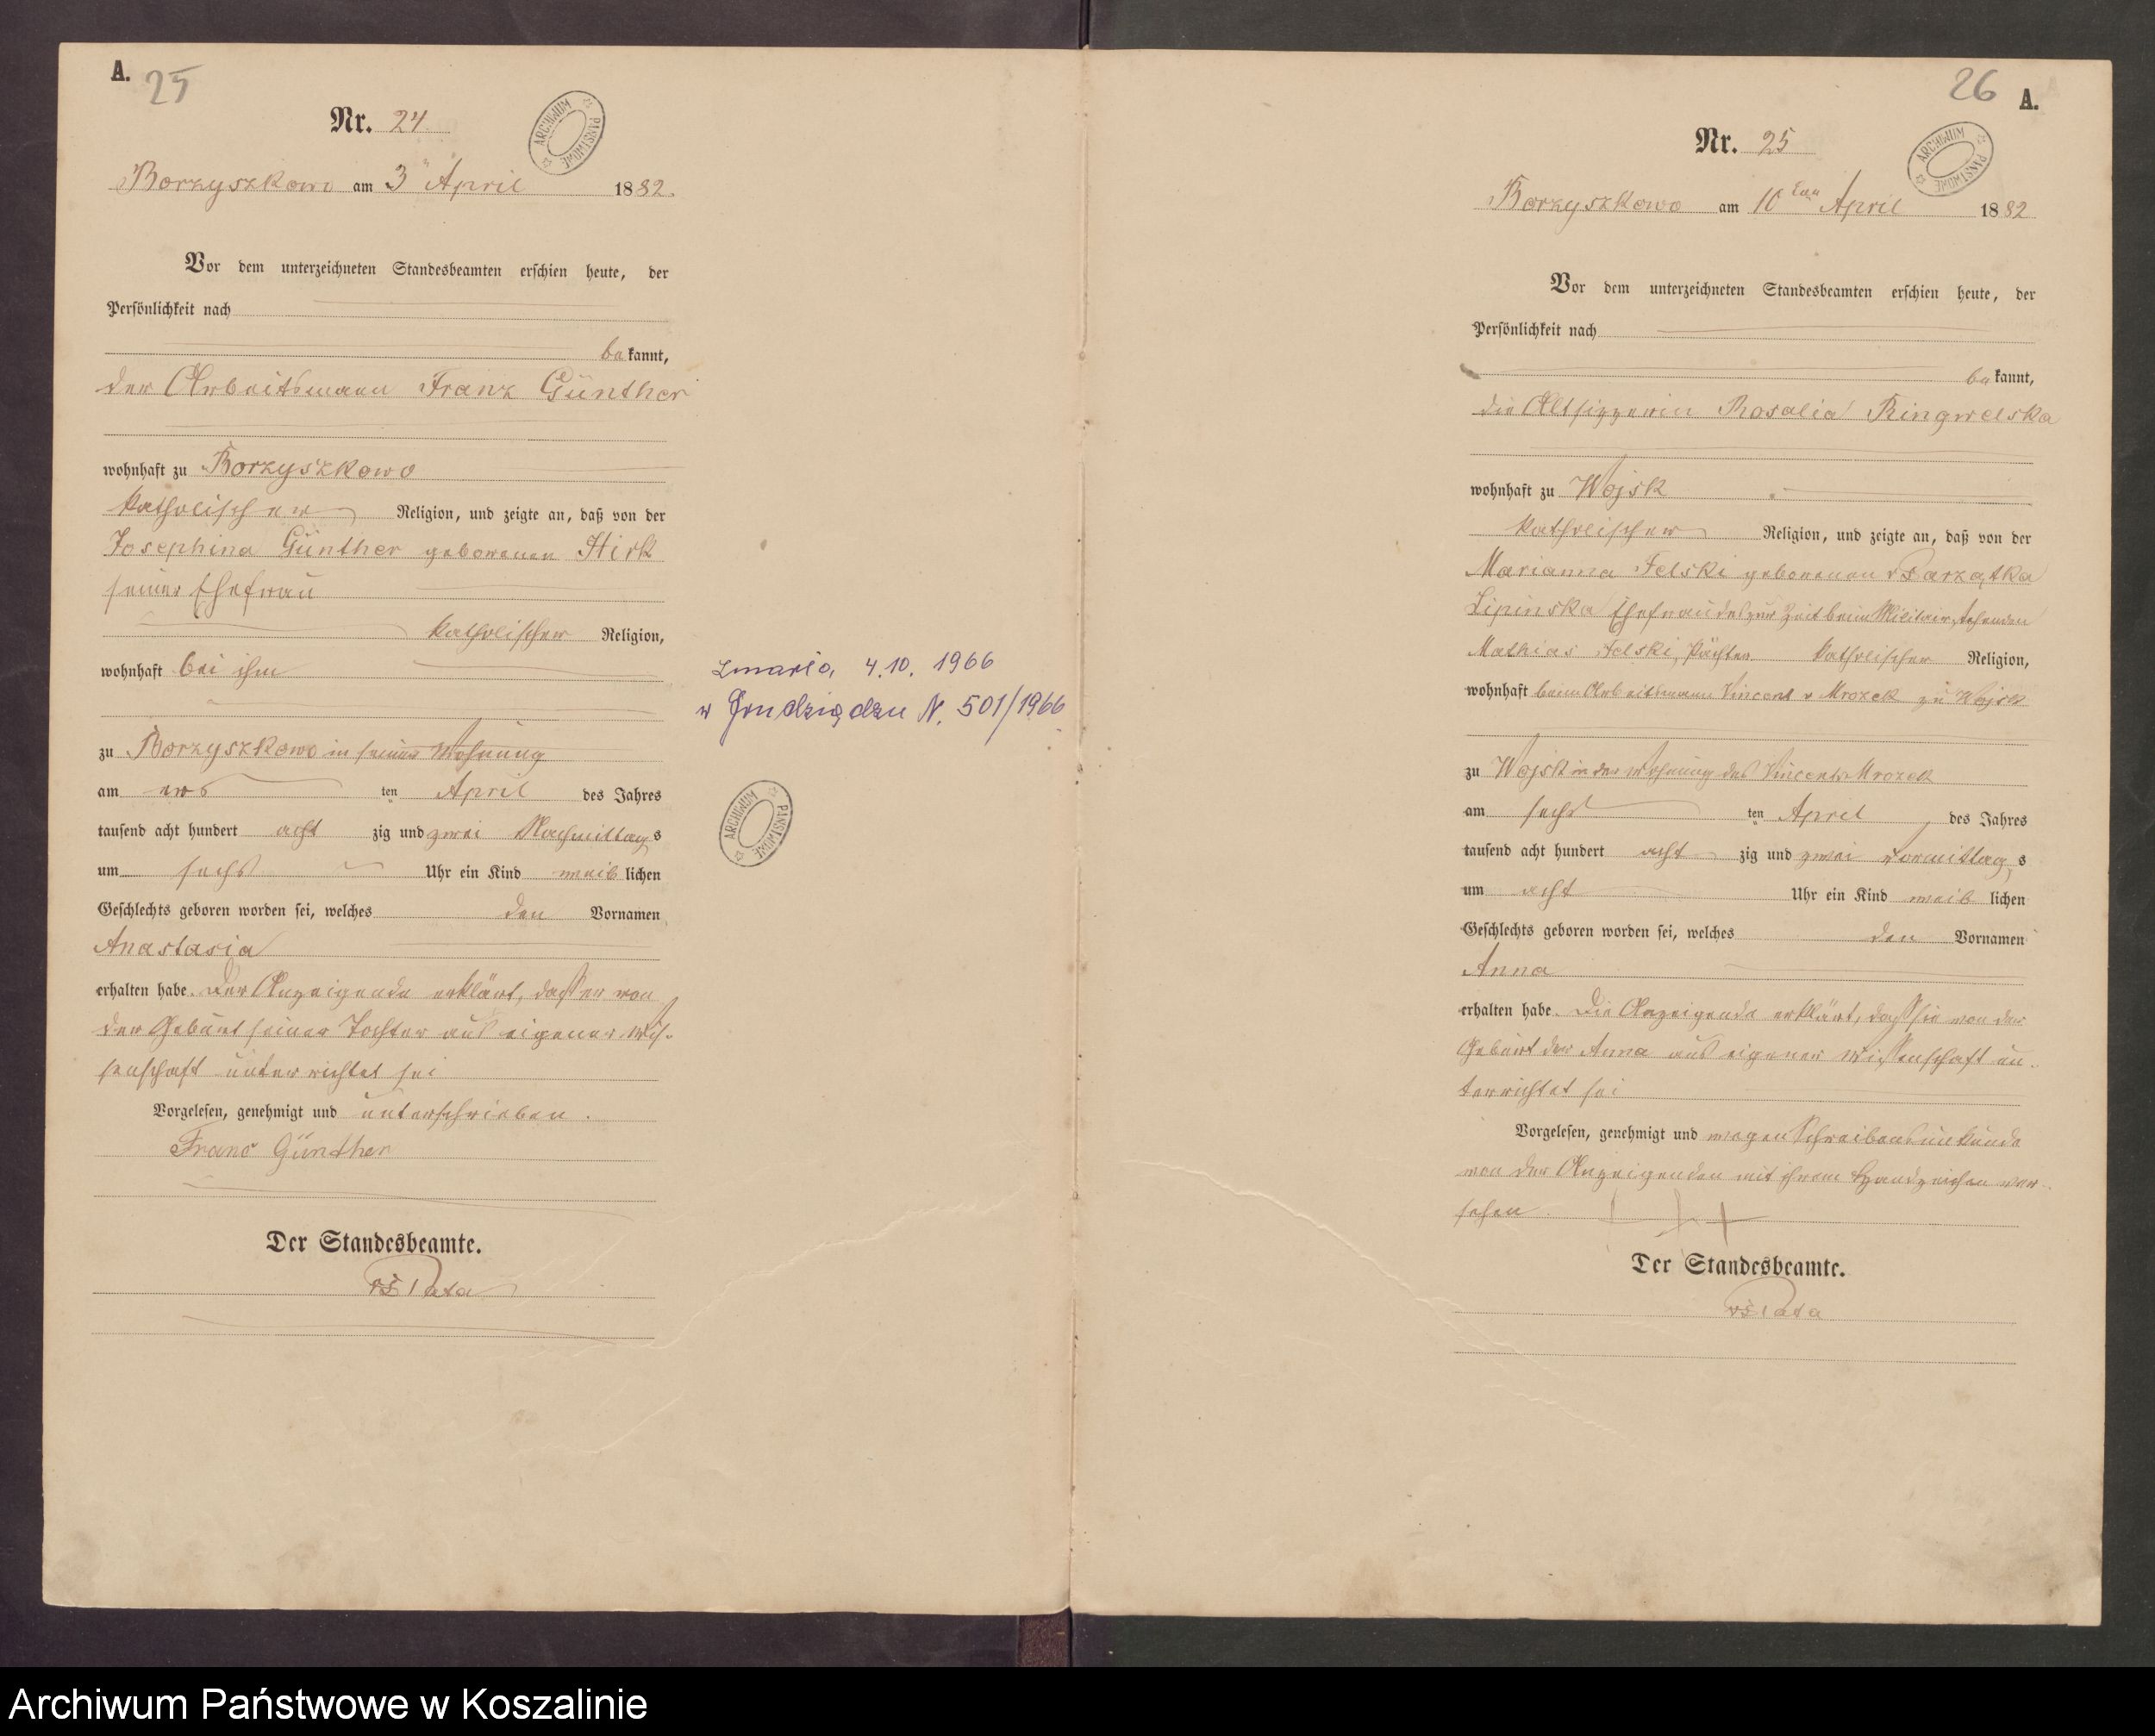 A. 25
Nr. 24
ARCHIWUM PAŃSTWOWE
Borzyszkowo am 3ⁿ April 1882.
Vor dem unterzeichneten Standesbeamten erschien heute, der
Persönlichkeit nach
bekannt,
der Arbeitsmann Franz Günther
wohnhaft zu Borzyszkowo
katholischer Religion, und zeigte an, daß von der
Josephina Günther geborenen Hirk
seiner Ehefrau
katholischer Religion,
wohnhaft bei ihm
zu Borzyszkowo in seiner Wohnung
am ers ten April des Jahres
tausend acht hundert acht zig und zwei Nachmittags
um sechs Uhr ein Kind weiblichen
Geschlechts geboren worden sei, welches den Vornamen
Anastasia
erhalten habe. Der Anzeigende erklärt, dass er von
der Geburt seiner Tochter aus eigener Wis-
senschaft unterrichtet sei
Vorgelesen, genehmigt und unterschrieben.
Franc Günther
Der Standesbeamte.
zmarła 4.10. 1966
w Grudziądzu N. 501/1966
ARCHIWUM PAŃSTWOWE
26 A.
Nr. 25
ARCHIWUM PAŃSTWOWE
Borzyszkowo am 10 ten April 1882
Vor dem unterzeichneten Standesbeamten erschien heute, der
Persönlichkeit nach
bekannt,
die Altsitzerin Rosalia Ringwelska
wohnhaft zu Wojsk
katholischer Religion, und zeigte an, daß von der
Marianna Felski geborenen
Lipinska Ehefrau des zur Zeit beim Militair stehenden
Mathias Felski, Pächter katholischer Religion,
wohnhaft beim Arbeitsmann Vincent v Mrozek zu Wojsk
zu Wojsk in der Wohnung des Vincent v Mrozek
am sechs ten April des Jahres
tausend acht hundert acht zig und zwei vormittags
um acht Uhr ein Kind weib lichen
Geschlechts geboren worden sei, welches den Vornamen
Anna
erhalten habe. Die Anzeigende erklärt, dass sie von der
Geburt der Anna aus eigener Wissenschaft un-
terrichtet sei
Vorgelesen, genehmigt und wegen Schreibensunkunde
von der Anzeigenden mit ihrem Handzeichen ver-
sehen. + + +
Der Standesbeamte.
Archiwum Państwowe w Koszalinie